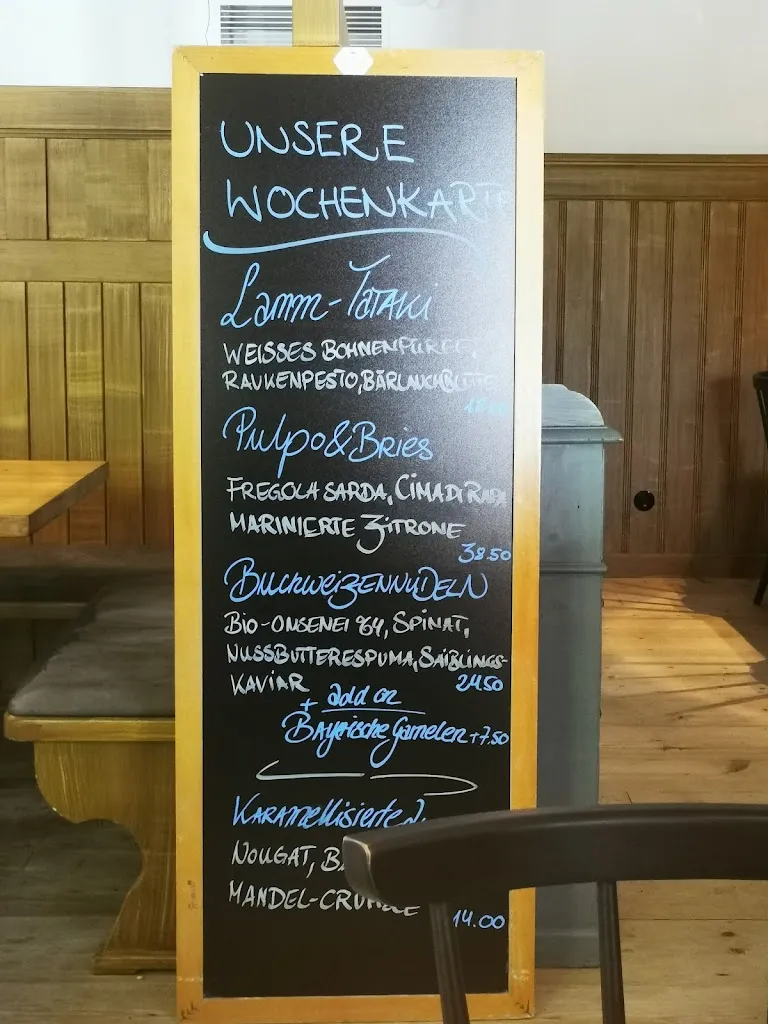 UNSERE
WOCHENKARTE
Lamm-Tataki
WEISSES BOHNENPÜREE,
RAUKENPESTO, BÄRLAUCHBLÜTE
Pulpo & Bries
FREGOLA SARDA, CIMA DI RAPA
MARINIERTE ZITRONE
38.50
BUCHWEIZENNUDELN
BIO-ONSENEI 64, SPINAT,
NUSSBUTTERESPUMA, SAIBLINGS-
KAVIAR 24.50
+ add on
Bayrische Garnelen +7.50
KARAMELLISIERTE
NOUGAT,
MANDEL-CRUMBLE
14.00